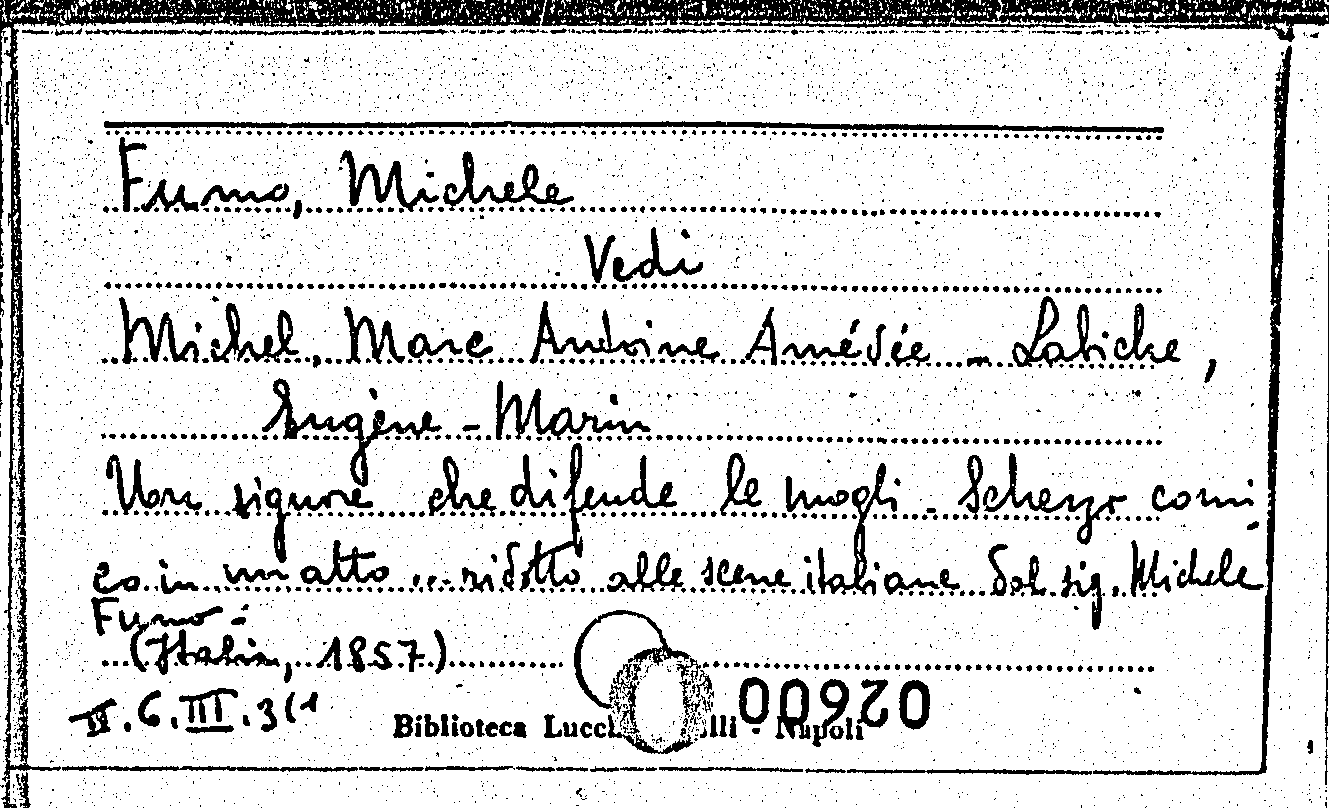 Fumo, Michele
Vedi
Michel, Marc Antoine Amédée - Labiche,
Eugène-Marin
signore che difende le mogli - Scherzo comi-
co in un atto ... ridotto alle scene italiane dal sig. Michele
Fumo -
(Italia, 1857)
II.6.III.3(1
Biblioteca Lucch lli - Napoli
02600